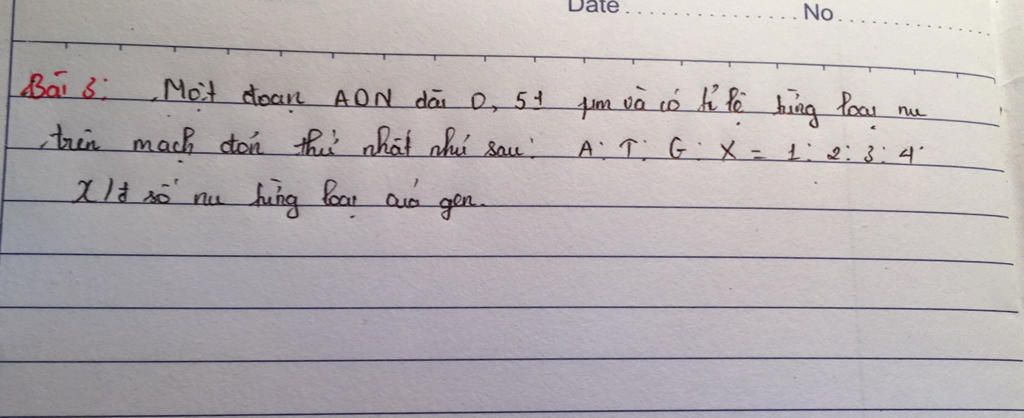 Date.................. No...................
Bài 3: Một đoạn ADN dài 0,51 µm và có tỉ lệ từng loại nu
trên mạch đơn thứ nhất như sau: A: T: G: X = 1: 2: 3: 4
x/đ số nu từng loại của gen.